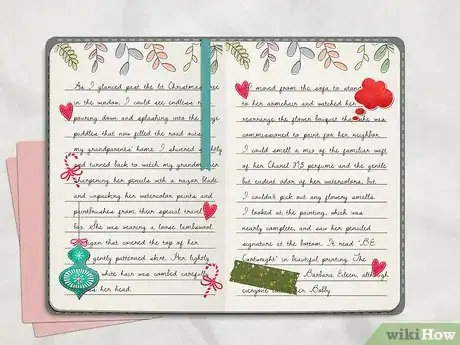 As I glanced past the lit Christmas
in the window, I could see endless
pouring down and splashing into the
puddles that now filled the road
my grandparents' home. I shivered
and turned back to watch my
sharpening her pencils with a razor blade
and unpacking her watercolor paints and
paintbrushes from their special travel
box. She was wearing a loose lambswool
that covered the top of her
gently patterned skirt. Her lightly
white hair was combed carefully
her head.
I moved from the sofa to
to her armchair and watched her
rearrange the flower bouquet that she was
commissioned to paint for her neighbor.
I could smell a mix of the familiar waft
of her Chanel N5 perfume and the gentle
but evident odor of her watercolors, but
I couldn't pick out any flowery smells.
I looked at the painting, which was
nearly complete, and saw her penciled
signature at the bottom. It read "B.E.
Cartwright" in beautiful printing. The
Barbara Eileen,
everyone her Bolly
wikiHow